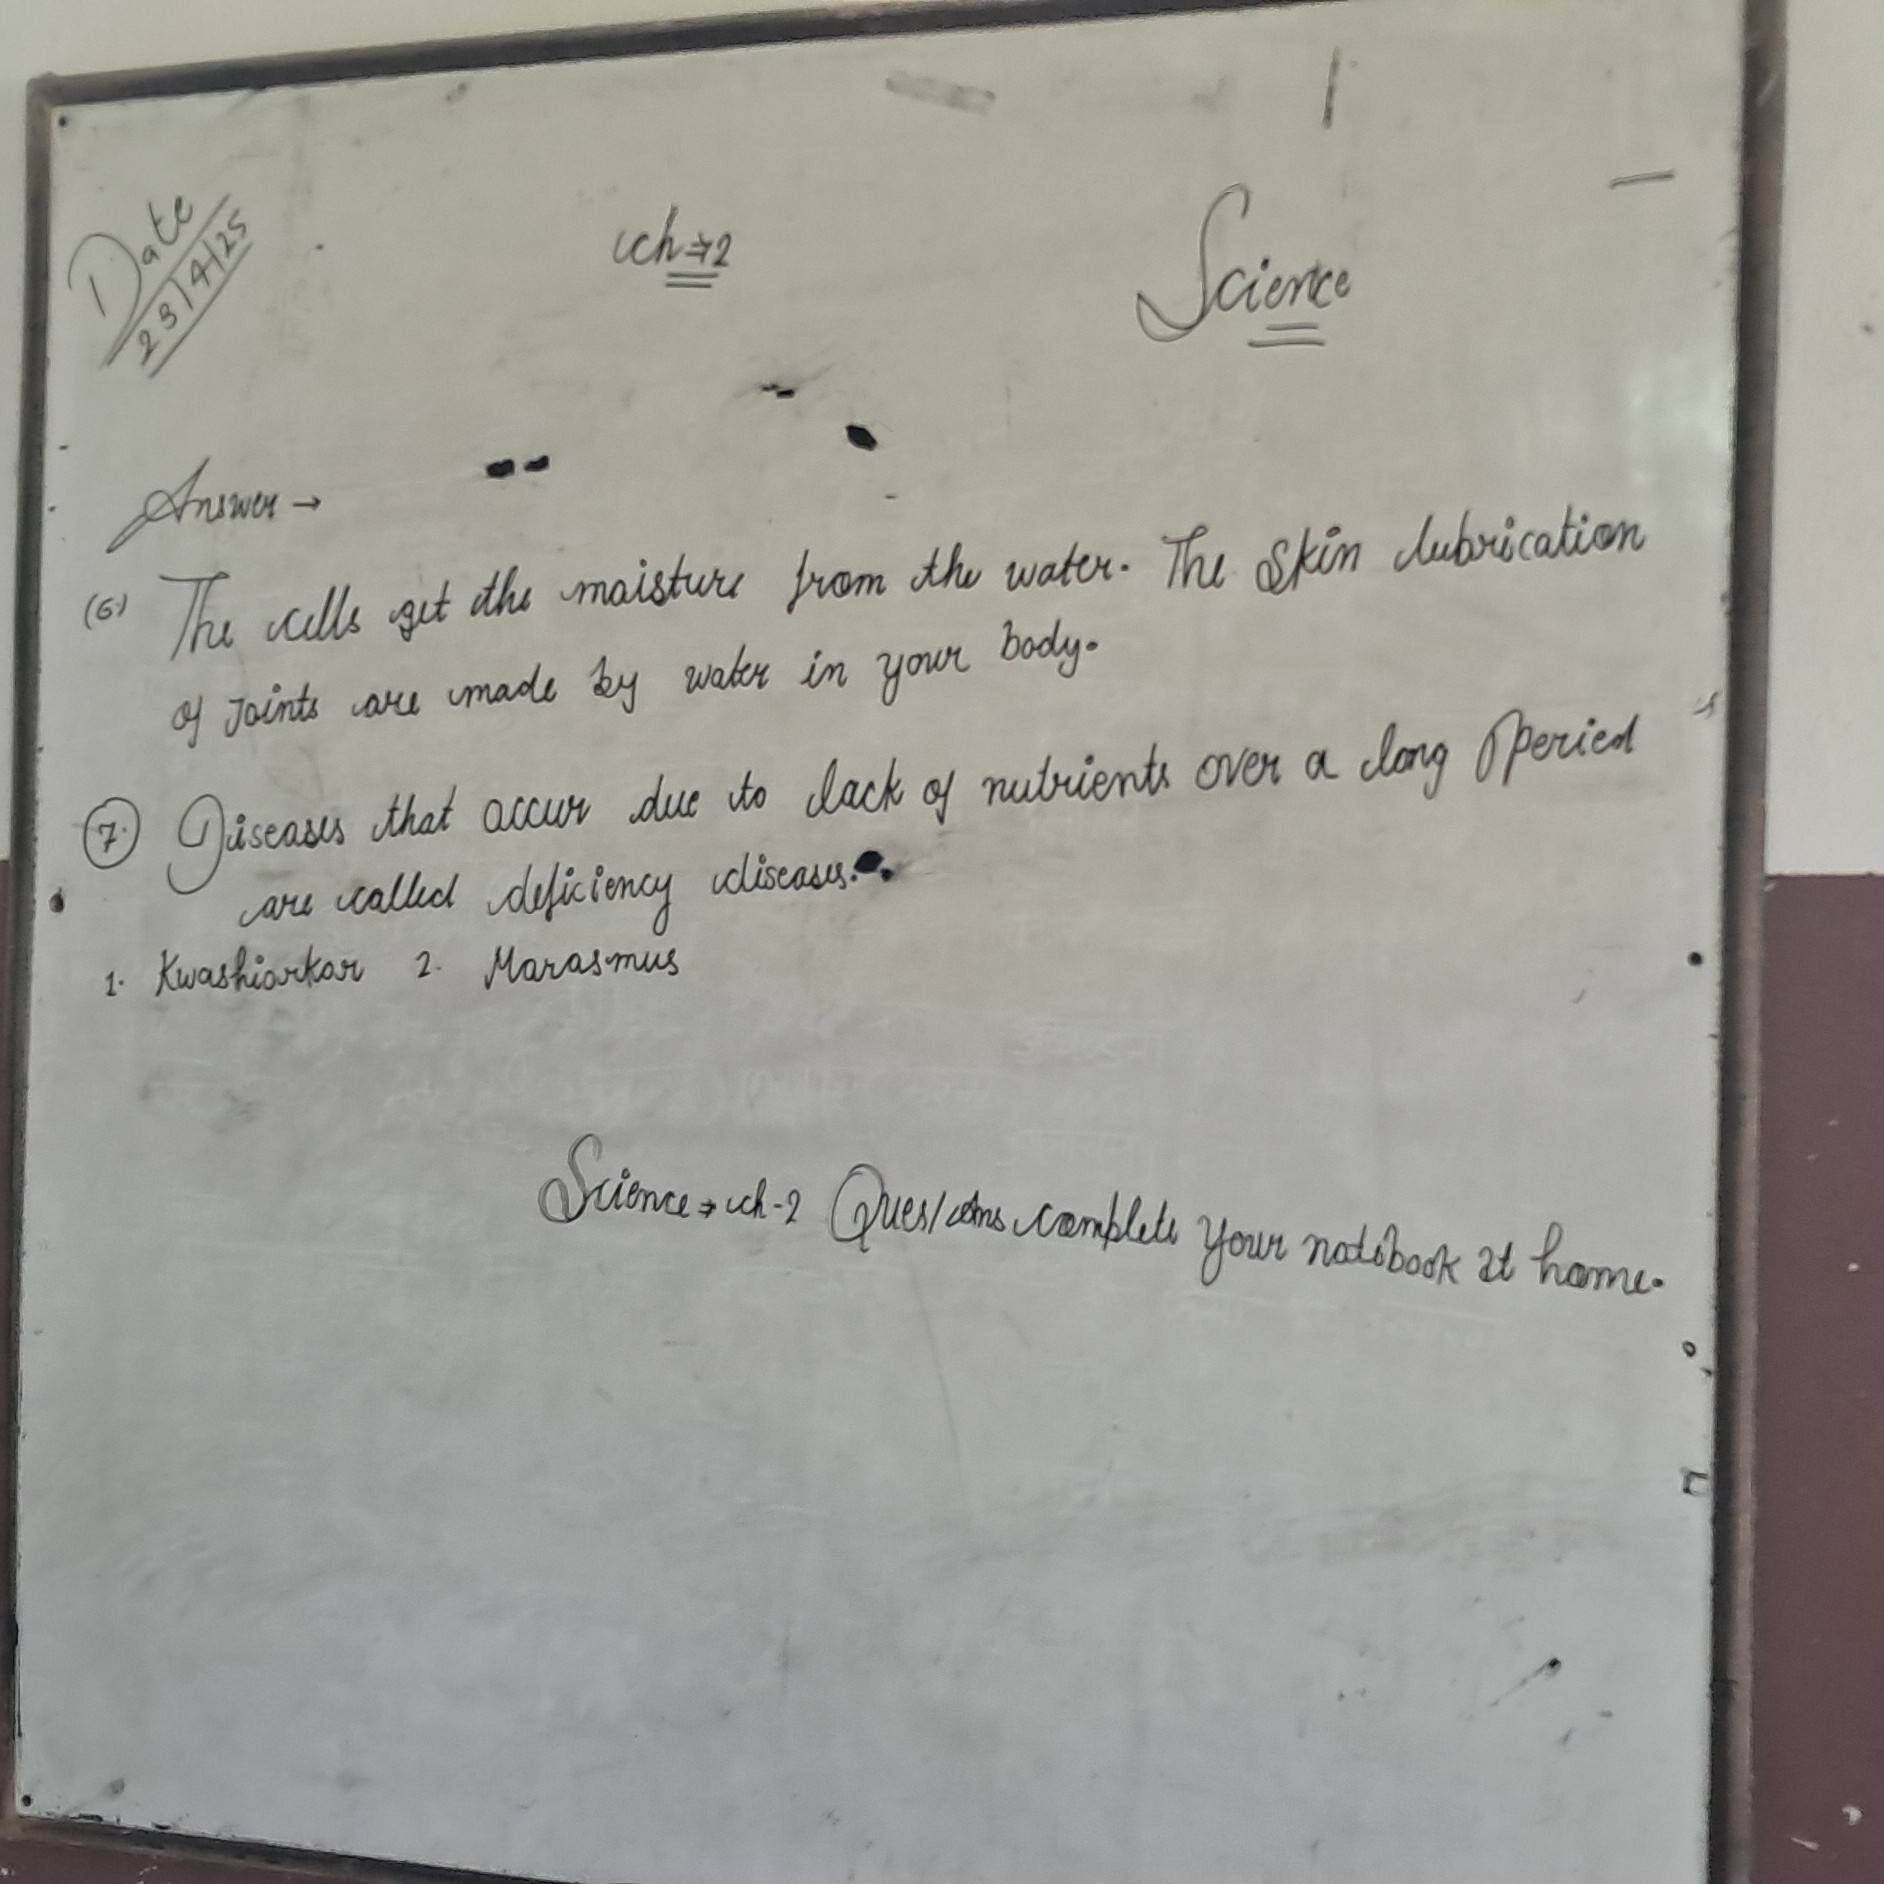 Date
23/4/25
ch⇒2
Science
Answer →
(6) The cells get the moisture from the water. The Skin lubrication
of Joints are made by water in your body.
7. Diseases that occur due to lack of nutrients over a long Period
are called deficiency diseases.
1. Kwashiorkor 2. Marasmus
Science ⇒ ch-2 Ques/Ans complete your notebook at home.